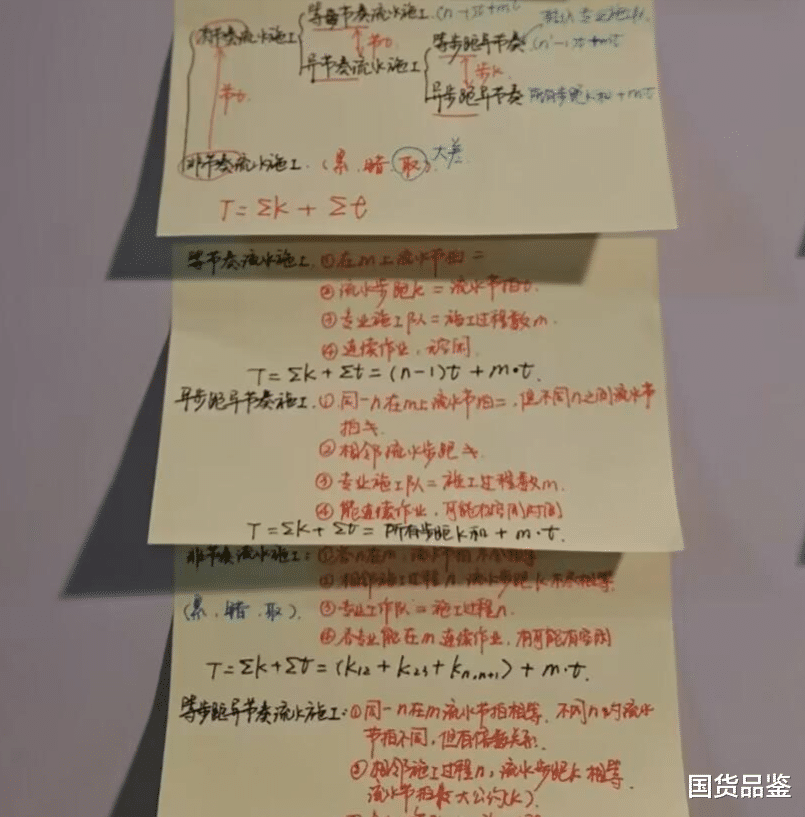 等每节奏流水施工.(n-1)t+mt
有节奏流水施工
异节奏流水施工
节t
等步距异节奏 (n'-1)t+mt
步k
异步距异节奏 所有步距k和+mt
节t
非节奏流水施工.(累.暗.取)大差
T=Σk+Σt
等节奏流水施工.①在m上流水节拍=
②流水步距k=流水节拍t.
③专业施工队=施工过程数m.
④连续作业,无空闲.
T=Σk+Σt=(n-1)t+m·t.
异步距异节奏施工.①同一n在m上流水节拍=,但不同n之间流水节
拍≠
②相邻流水步距≠
③专业施工队=施工过程数m.
④能连续作业,可能有空闲时间
T=Σk+Σt=所有步距k和+m·t.
非节奏流水施工:①各n在m,流水节拍不全相等
②相邻施工过程n,流水步距k不尽相等.
(累.暗.取).③专业工作队=施工过程n.
④各专业能在m连续作业,有可能有空闲
T=Σk+Σt=(k12+k23+kn,n+1)+m·t.
等步距异节奏流水施工:①同一n在m流水节拍相等,不同n的流水
节拍不同,但有倍数关系.
②相邻施工过程n,流水步距k相等.
流水节拍最大公约(k).
国货品鉴